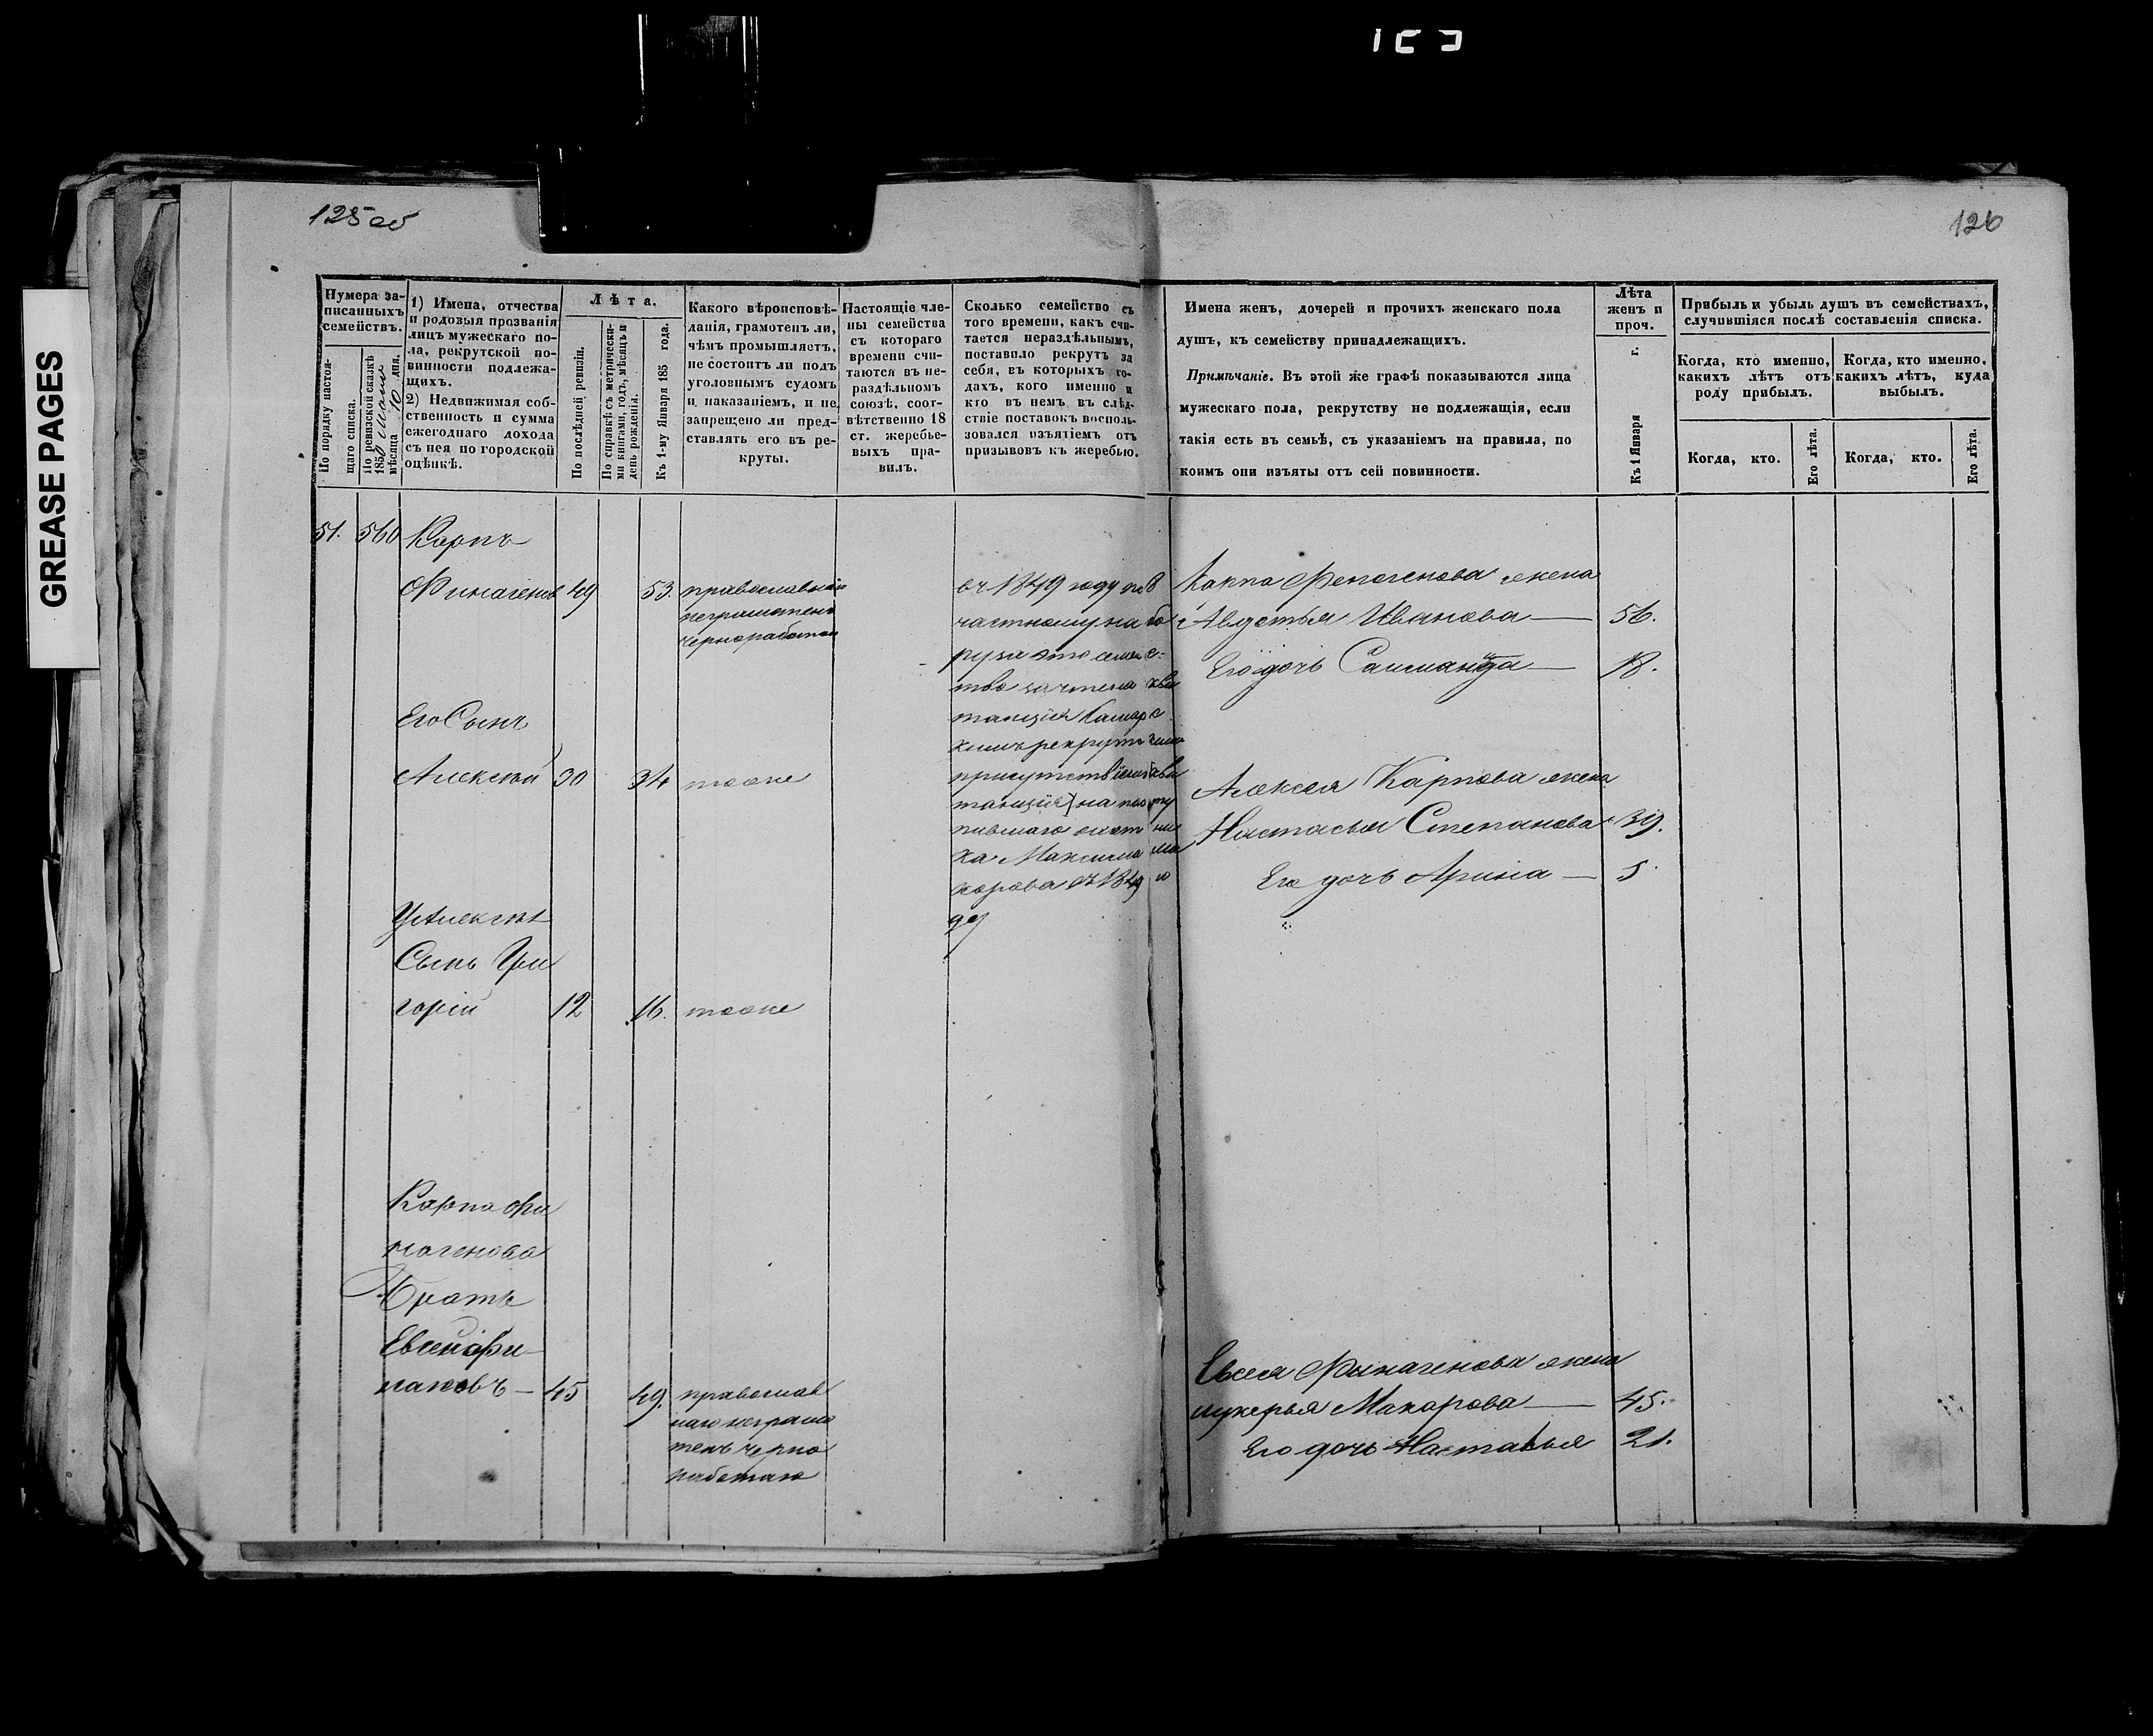 GREASE PAGES
125 об
126
Нумера записанныхъ семействъ.
По порядку настоящаго списка.
По ревизской сказкѣ 1850 мѣсяца 10 дня.
1) Имена, отчества
и родовыя прозванія
лицъ мужескаго по-
ла, рекрутской по-
винности подлежа-
щихъ.
2) Недвижимая соб-
ственность и сумма
ежегоднаго дохода
съ нея по городской
оцѣнкѣ.
Лѣта.
По послѣдней ревизіи.
По справкѣ съ метрически-
ми книгами, годъ, мѣсяцъ и
день рожденія.
Къ 1-му Января 185 года.
Какого вѣроисповѣ-
данія, грамотенъ ли,
чѣмъ промышляетъ,
не состоитъ ли подъ
уголовнымъ судомъ
и наказаніемъ, и не
запрещено ли пред-
ставлять его въ ре-
круты.
Настоящіе чле-
ны семейства
съ котораго
времени счи-
таются въ не-
раздѣльномъ
союзѣ, соот-
вѣтственно 18
ст. жеребье-
выхъ пра-
вилъ.
Сколько семейство съ
того времени, какъ счи-
тается нераздѣльнымъ,
поставило рекрутъ за
себя, въ которыхъ го-
дахъ, кого именно и
кто въ немъ въ слѣд-
ствіе поставокъ восполь-
зовался изъятіемъ отъ
призывовъ къ жеребью.
Имена женъ, дочерей и прочихъ женскаго пола
душъ, къ семейству принадлежащихъ.
Примѣчаніе. Въ этой же графѣ показываются лица
мужескаго пола, рекрутству не подлежащія, если
такія есть въ семьѣ, съ указаніемъ на правила, по
коимъ они изъяты отъ сей повинности.
Лѣта
женъ и
проч.
Къ 1 Января г.
Прибыль и убыль душъ въ семействахъ,
случившіяся послѣ составленія списка.
Когда, кто именно,
какихъ лѣтъ отъ
роду прибылъ.
Когда, кто именно,
какихъ лѣтъ, куда
выбылъ.
Когда, кто.
Его лѣта.
Когда, кто.
Его лѣта.
51. 560 Карпъ
Финагеновъ 49 53. православный
неграмотенъ
Его Сынъ
Алексѣй 30 34 тоже
У Алексѣя
Сынъ Гри
горій 12 16. тоже
Карпа Фи
ногенова
Братъ
Евсей Фи
нагеновъ — 45 49. православ
наго неграмо
тенъ черно
работаю
въ 1849 году по
Карпа Феногенова жена
Авдотья Иванова — 56.
Его дочь — 18.
Алексея Карпова жена
Настасья Степанова 39.
Его дочь Арина — 5.
Евсея Финагенова жена
лукерья Макарова — 45.
Его дочь Настасья 21.